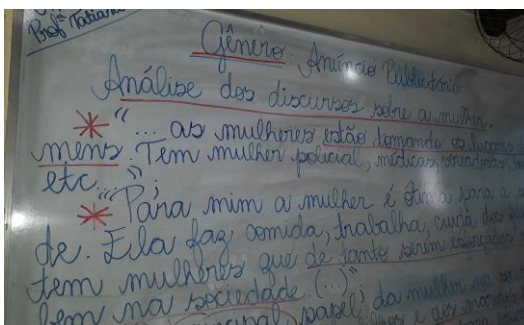 Profª Tatiana
Gênero Anúncio Publicitário
Análise dos discursos sobre a mulher.
* "... as mulheres estão tomando os lugares
mens. Tem mulher policial, médicas, vereadoras,
etc..."
* "Para mim a mulher é ótima para a
de. Ela faz comida, trabalha, cuida dos
tem mulheres que de tanto serem
bem na sociedade. (...)"
papel da mulher na
e dos maridos